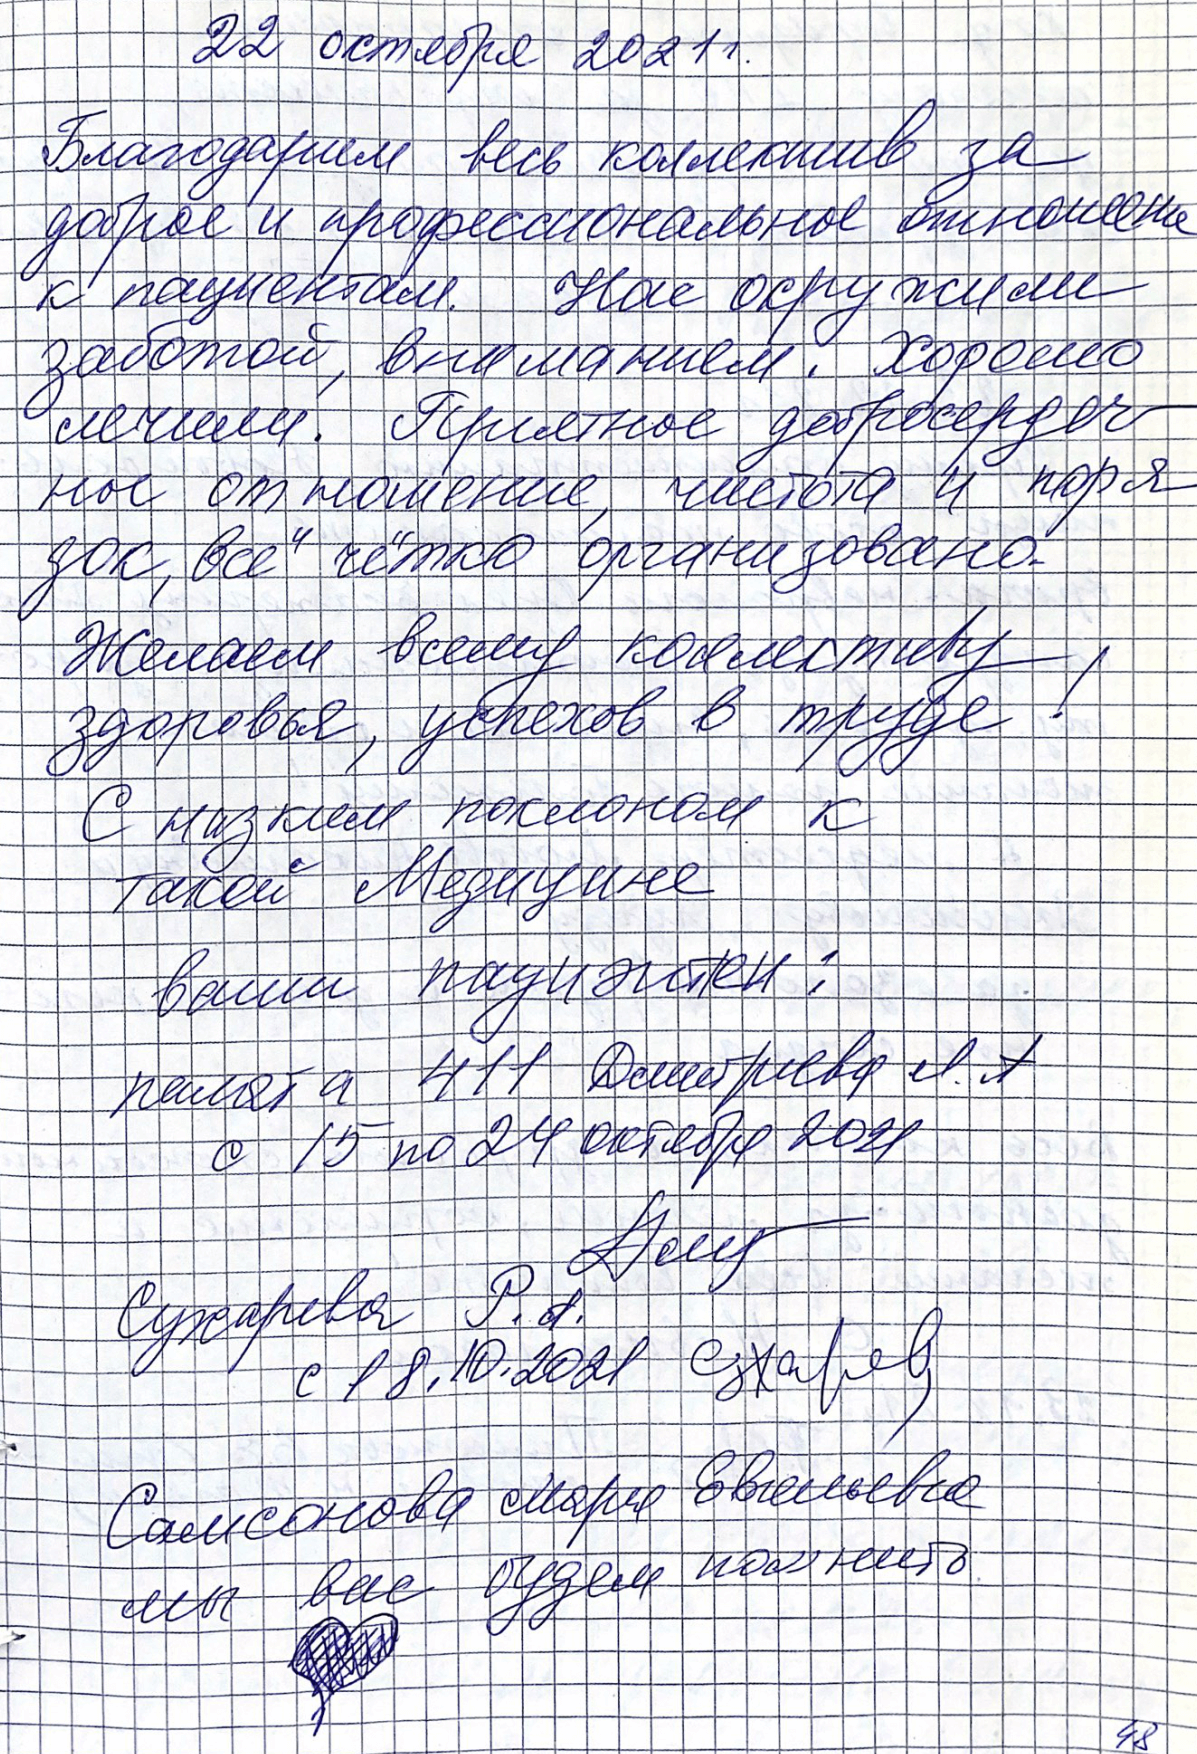 22 октября 2021 г.
Благодарим весь коллектив за
доброе и профессиональное отношение
к пациентам. Нас окружили
заботой, вниманием. Хорошо
лечили. Приятное добросердеч-
ное отношение, чистота и поря
док, всё чётко организовано.
Желаем всему коллективу
здоровья, успехов в труде!
С низким поклоном к
такой Медицине
ваши пациэнтки:
палата 411 Дмитриева Л.А
с 15 по 24 октября 2021
Сухарева Р.А.
с 18.10.2021 Сухарев
Самсонова Мария
мы вас будем помнить
48